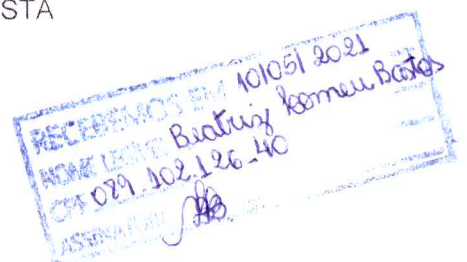 STA
RECEBEMOS EM 10/05/2021
NOME LEGÍVEL Beatriz Romeu Bastos
CPF 079.102.126-40
ASSINATURA